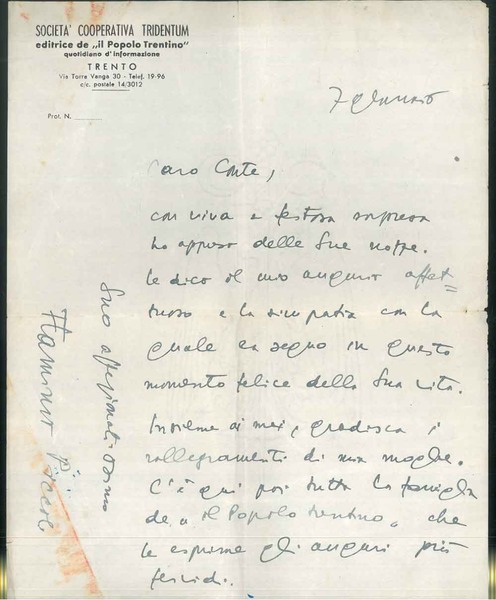 SOCIETA' COOPERATIVA TRIDENTUM
editrice de „il Popolo Trentino"
quotidiano d'informazione
TRENTO
Via Torre Vanga 30 - Telef. 19-96
c/c. postale 14/3012
Prot. N.
7 gennaio
Caro Conte,
con viva e festosa sorpresa
ho appreso delle Sue nozze.
Le dico il mio augurio affet=
tuoso e la simpatia con la
quale La seguo in questo
momento felice della Sua vita.
Insieme ai miei, gradisca i
rallegramenti di mia moglie.
C'è qui poi tutta la famiglia
de „il Popolo trentino", che
le esprime gli auguri più
fervidi.
Suo affezionatissimo
Flaminio Piccoli